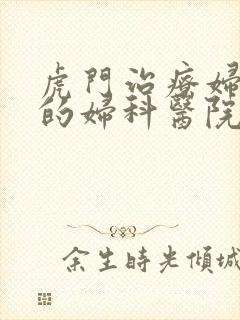 虎門治療婦
的婦科醫院
余生時光傾城